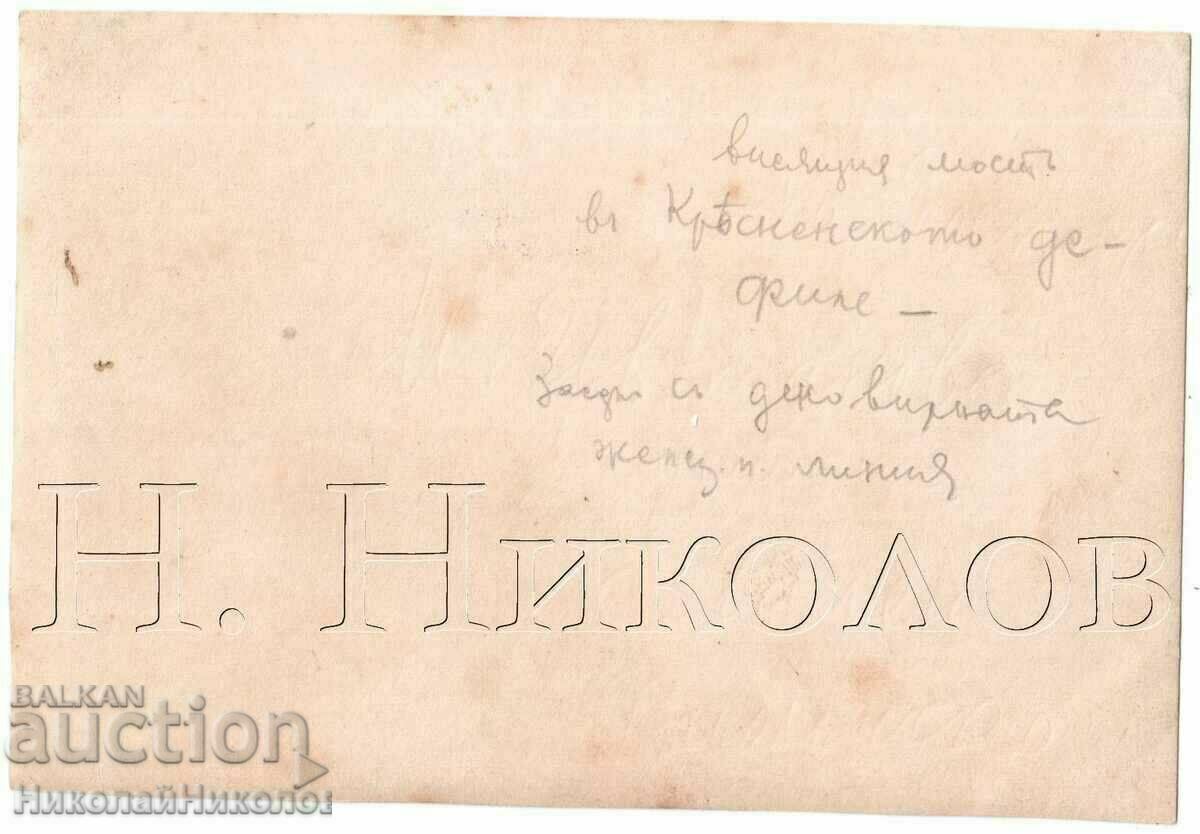 висящия мостъ
въ Крѣсненското де-
филе –
Заедно съ деновирната
желез. п. линия
Н. Николов
BALKAN
auction
НиколайНиколов